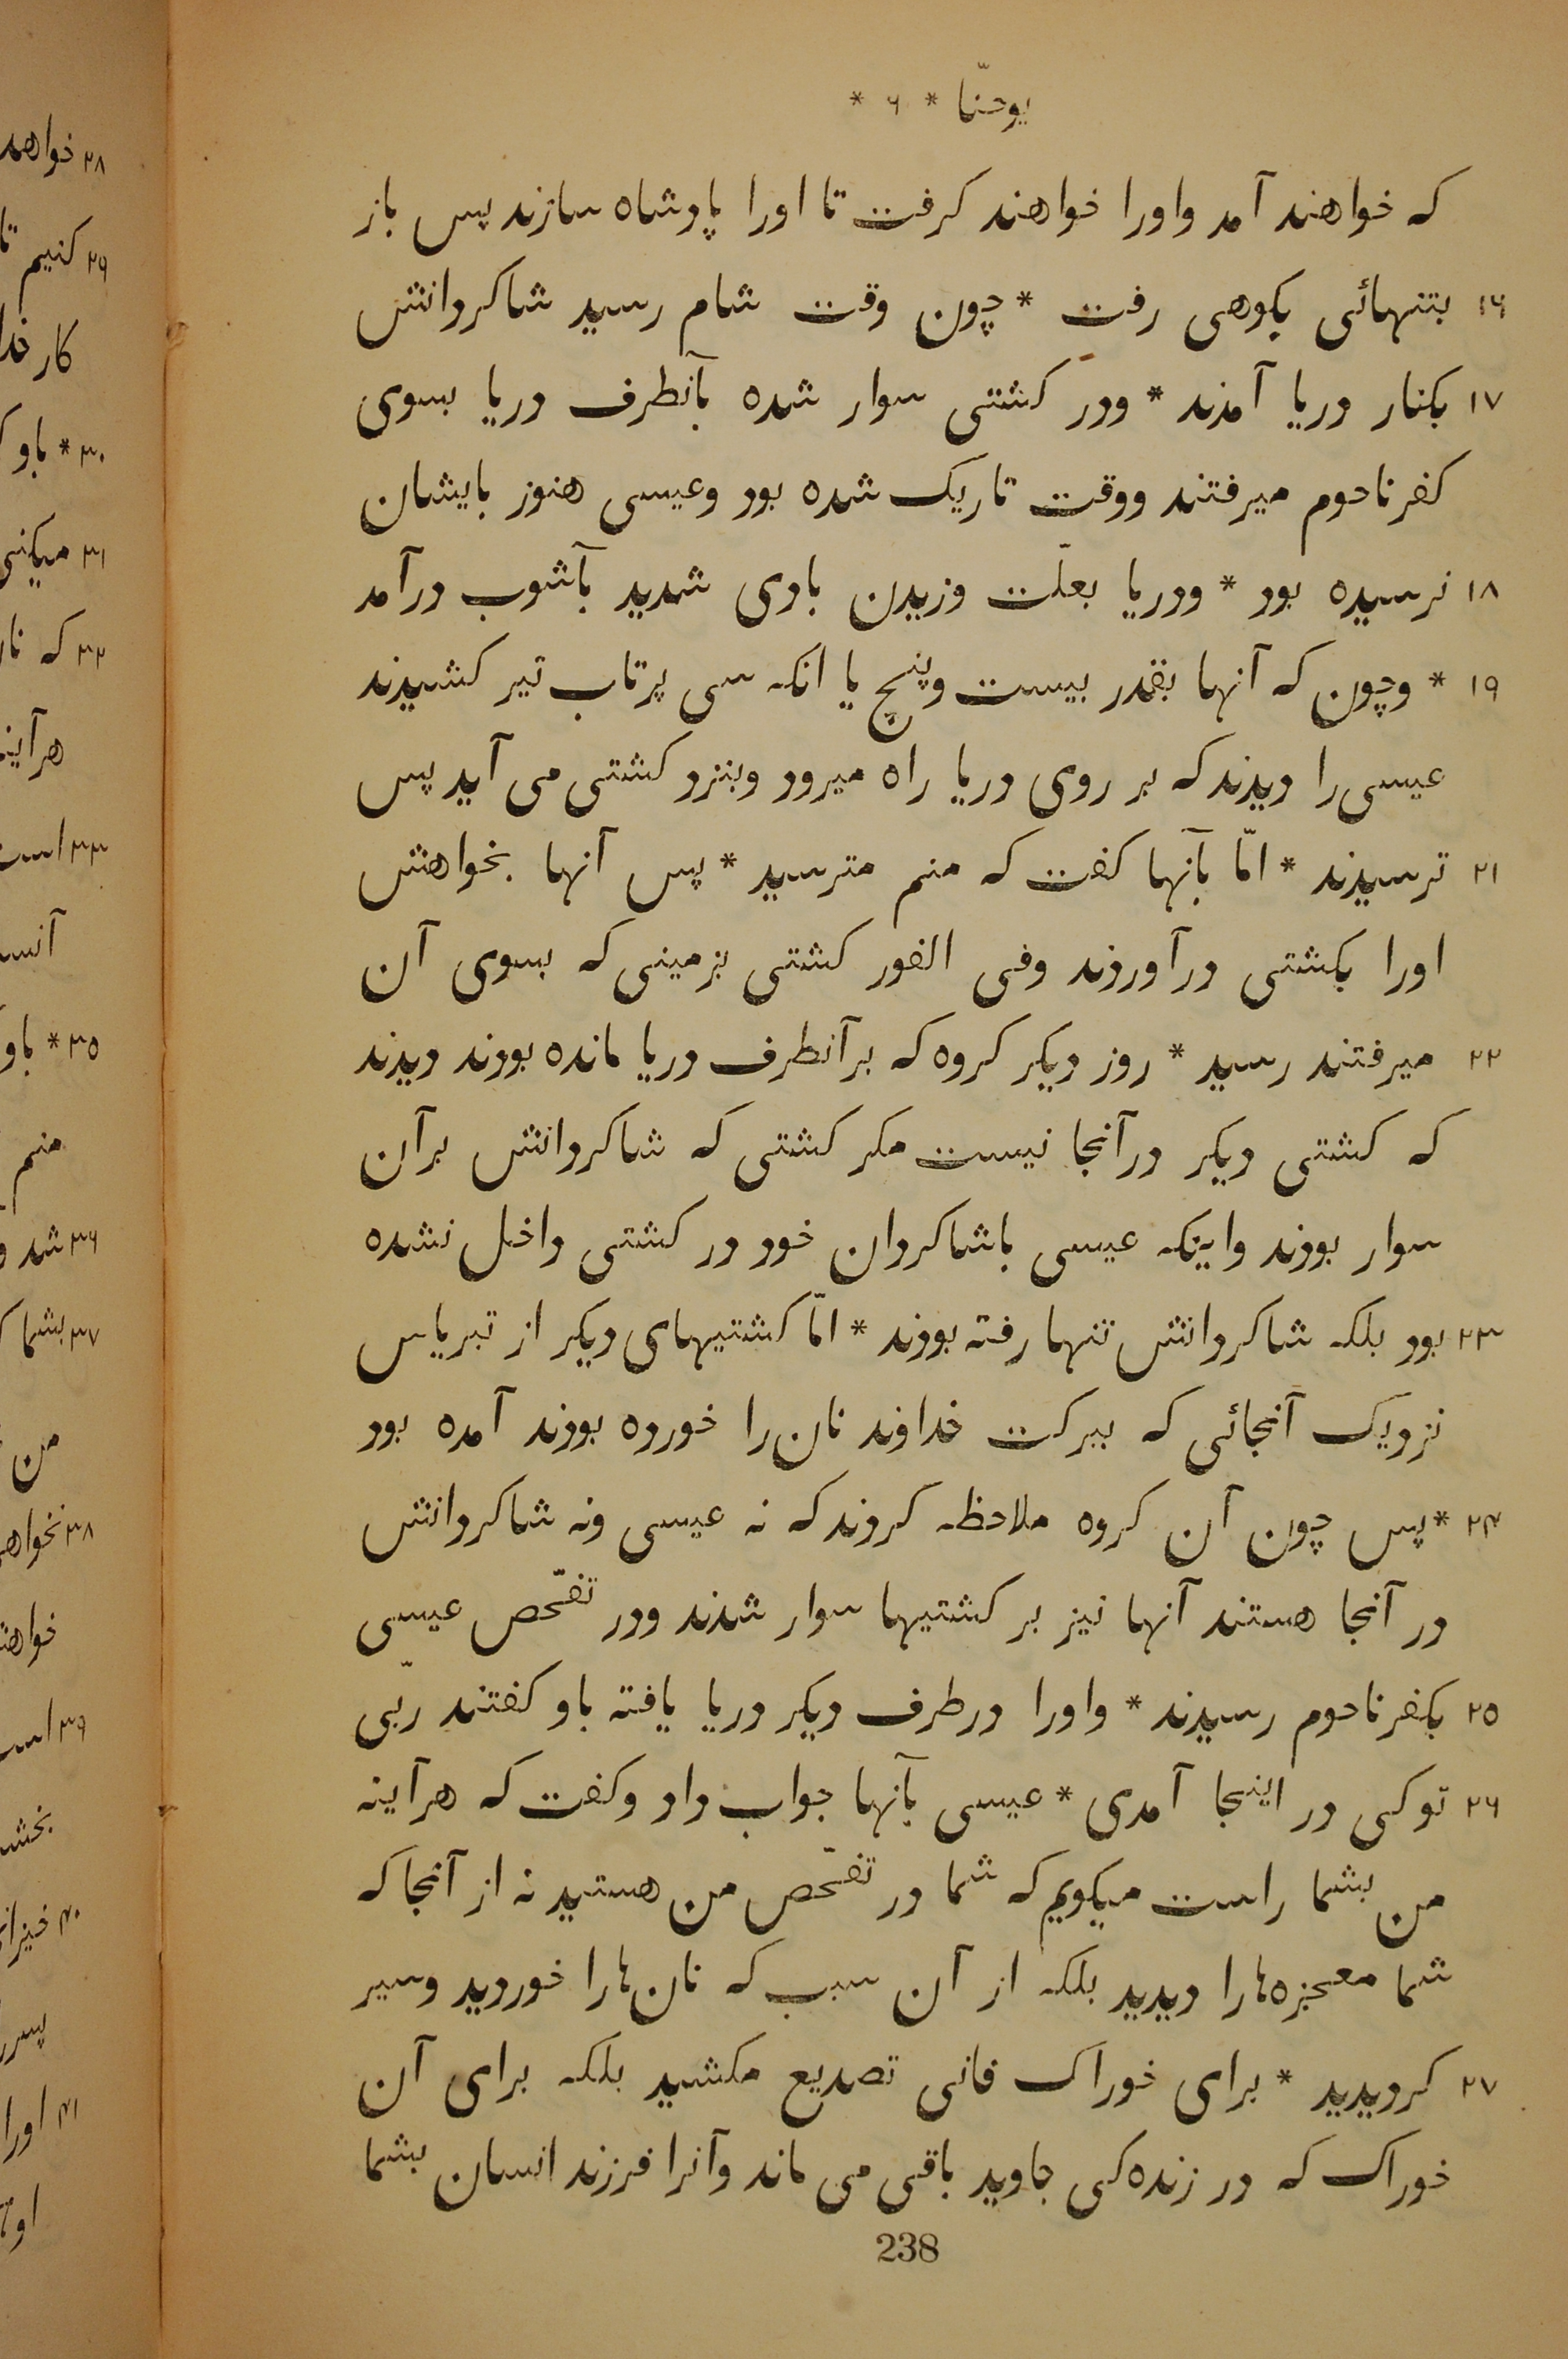 یوحنّا * ۶ *
که خواهند آمد واورا خواهند کرفت تا اورا پادشاه سازند پس باز
۱۶ بتنهائی بکوهی رفت * چون وقت شام رسید شاکردانش
۱۷ بکنار دریا آمدند * ودر کشتی سوار شده بآنطرف دریا بسوی
کفرناحوم میرفتند ووقت تاریک شده بود وعیسی هنوز بایشان
۱۸ نرسیده بود * ودریا بعلّت وزیدن بادی شدید بآشوب درآمد
۱۹ * وچون که آنها بقدر بیست وپنج یا انکه سی پرتاب تیر کشیدند
عیسی را دیدند که بر روی دریا راه میرود وبنزد کشتی می آید پس
۲۱ ترسیدند * امّا بآنها کفت که منم مترسید * پس آنها بخواهش
اورا بکشتی درآوردند وفی الفور کشتی بزمینی که بسوی آن
۲۲ میرفتند رسید * روز دیکر کروه که برآنطرف دریا مانده بودند دیدند
که کشتی دیکر درآنجا نیست مکر کشتی که شاکردانش برآن
سوار بودند واینکه عیسی باشاکردان خود در کشتی داخل نشده
۲۳ بود بلکه شاکردانش تنها رفته بودند * امّا کشتیهای دیکر از تبریاس
نزدیک آنجائی که ببرکت خداوند نان را خورده بودند آمده بود
۲۴ * پس چون آن کروه ملاحظه کردند که نه عیسی ونه شاکردانش
در آنجا هستند آنها نیز بر کشتیها سوار شدند ودر تفحّص عیسی
۲۵ بکفرناحوم رسیدند * واورا درطرف دیکر دریا یافته باو کفتند ربّی
۲۶ تو کی در اینجا آمدی * عیسی بآنها جواب داد وکفت که هرآینه
من بشما راست میکویم که شما در تفحّص من هستید نه از آنجا که
شما معجزه‌هارا دیدید بلکه از آن سبب که نان‌هارا خوردید وسیر
۲۷ کردیدید * برای خوراک فانی تصدیع مکشید بلکه برای آن
خوراک که در زنده‌کی جاوید باقی می ماند وآنرا فرزند انسان بشما
238
۲۸ خواهد
۲۹ کنیم تا
کار خدا
۳۰ * باو
۳۱ میکنی
۳۲ که
هرآینه
۳۳
۳۵ * باو
منم
۳۶ شد و
۳۷ بشما
من
۳۸
۳۹
۴۰
۴۱ اورا